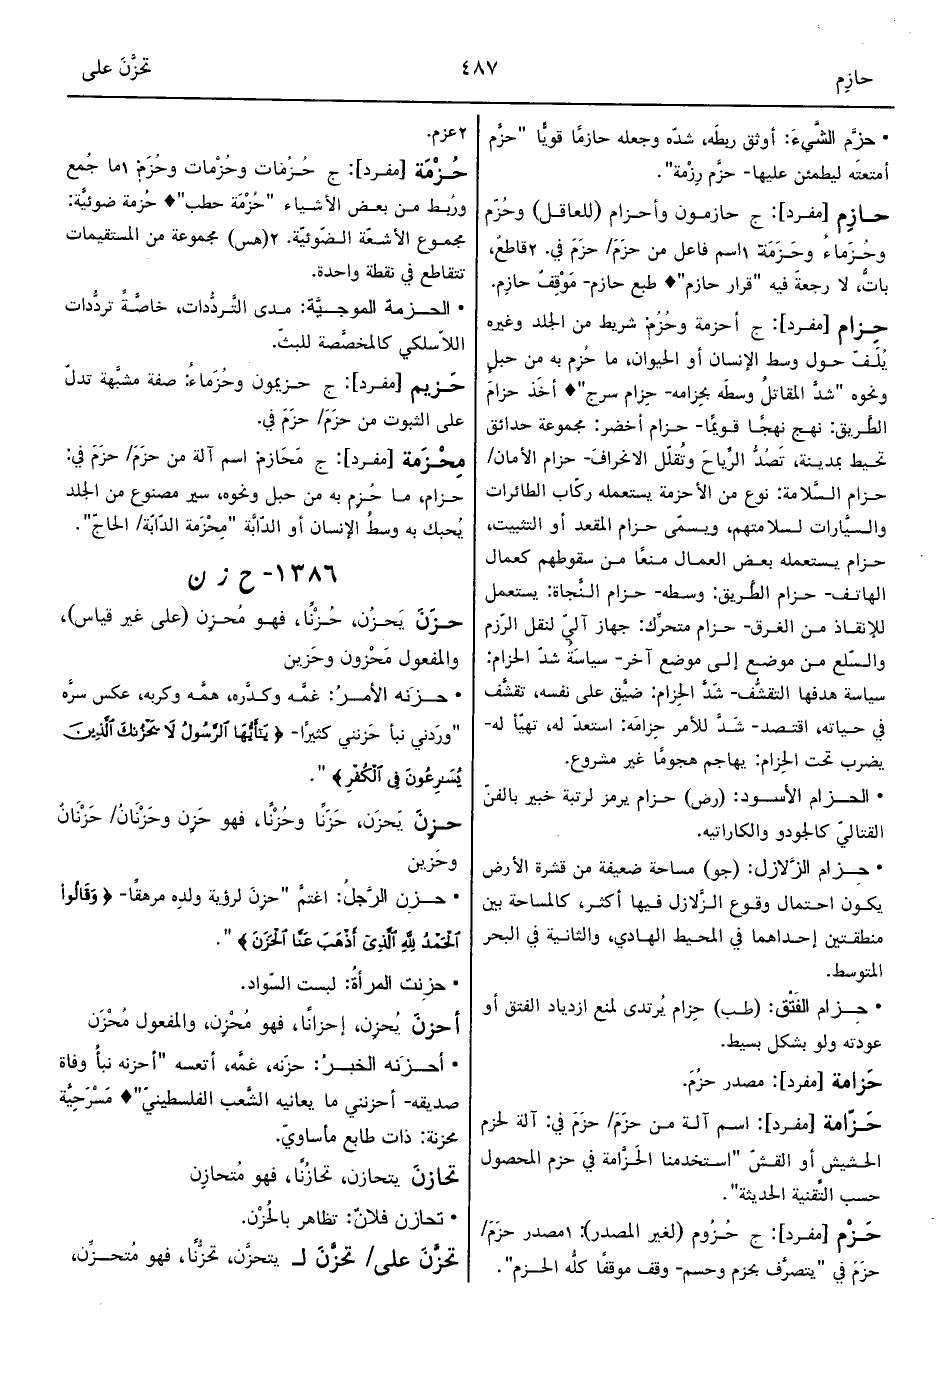 حازِم
٤٨٧
تحزَّنَ على
• حزَّم الشَّيءَ: أوثق ربطَه، شدّه وجعله حازمًا قويًّا "حزَّم
أمتعتَه ليطمئن عليها- حزَّم رِزْمة".
حازِم [مفرد]: ج حازمون وأحزام (للعاقل) وحُزَّم
وحُزَماءُ وحَزَمَة: ١اسم فاعل من حزَمَ/ حزَمَ في. ٢قاطعٌ،
باتٌّ، لا رجعةَ فيه "قرار حازم"♦ طبع حازم- مَوْقِفٌ حازِم.
حِزام [مفرد]: ج أحزمة وحُزُم: شريط من الجلد وغيره
يُلَفّ حول وسط الإنسان أو الحيوان، ما حُزِم به من حبلٍ
ونحوه "شدَّ المقاتلُ وسطَه بحِزامه- حِزام سرج"♦ أخَذ حزامَ
الطَّريق: نهج نهجًا قويمًا- حزام أخضر: مجموعة حدائق
تحيط بمدينة، تَصُدُّ الرِّياحَ وتُقلّل الانحرافَ- حزام الأمان/
حزام السَّلامة: نوع من الأحزمة يستعمله ركّاب الطائرات
والسيَّارات لسلامتهم، ويسمّى حزام المقعد أو التثبيت،
حزام يستعمله بعض العمال منعًا من سقوطهم كعمال
الهاتف- حزام الطَّريق: وسطه- حزام النَّجاة: يستعمل
للإنقاذ من الغرق- حزام متحرِّك: جهاز آليّ لنقل الرّزم
والسِّلع من موضع إلى موضع آخر- سياسَةُ شدّ الحزام:
سياسة هدفها التقشُّف- شَدَّ الحِزام: ضيَّق على نفسه، تقشَّف
في حياته، اقتصد- شَدَّ للأمر حِزامَه: استعدّ له، تهيّأ له-
يضرب تحت الحِزام: يهاجم هجومًا غير مشروع.
• الحزام الأسود: (رض) حزام يرمز لرتبة خبير بالفنّ
القتاليّ كالجودو والكاراتيه.
• حزام الزّلازل: (جو) مساحة ضعيفة من قشرة الأرض
يكون احتمال وقوع الزَّلازل فيها أكثر، كالمساحة بين
منطقتين إحداهما في المحيط الهادي، والثانية في البحر
المتوسط.
• حِزام الفَتْق: (طب) حِزام يُرتدى لمنع ازدياد الفتق أو
عودته ولو بشكل بسيط.
حَزامة [مفرد]: مصدر حزُمَ.
حَزّامة [مفرد]: اسم آلة من حزَمَ/ حزَمَ في: آلة لحزم
الحشيش أو القشّ "استخدمنا الحَزَّامة في حزم المحصول
حسب التَّقنية الحديثة".
حَزْم [مفرد]: ج حُزُوم (لغير المصدر): ١مصدر حزَمَ/
حزَمَ في "يتصرَّف بحزم وحسم- وقف موقفًا كلُّه الحزم".
٢عزم.
حُزْمَة [مفرد]: ج حُزُمات وحُزْمات وحُزَم: ١ما جُمع
ورُبط من بعض الأشياء "حُزْمَة حطب"♦ حُزمة ضوئيَّة:
مجموع الأشعَّة الضّوئيّة. ٢(هس) مجموعة من المستقيمات
تتقاطع في نقطة واحدة.
• الحزمة الموجيَّة: مدى التَّردُّدات، خاصَّةً تردُّدات
اللاّسلكي كالمخصَّصة للبثّ.
حَزيم [مفرد]: ج حزيمون وحُزَماءُ: صفة مشبَّهة تدلّ
على الثبوت من حزَمَ/ حزَمَ في.
مِحْزمة [مفرد]: ج مَحَازم: اسم آلة من حزَمَ/ حزَمَ في:
حزام، ما حُزِم به من حبل ونحوه، سير مصنوع من الجلد
يُحبك به وسطُ الإنسان أو الدّابَّة "مِحْزمة الدّابّة/ الحاجّ".
١٣٨٦- ح ز ن
حزَنَ يَحزُن، حُزْنًا، فهو مُحزِن (على غير قياس)،
والمفعول مَحْزون وحَزين
• حزنَه الأمرُ: غمَّه وكدَّره، همَّه وكربه، عكس سرَّه
"ورَدني نبأ حَزنني كثيرًا- ﴿ يَٰٓأَيُّهَا ٱلرَّسُولُ لَا يَحْزُنكَ ٱلَّذِينَ
يُسَٰرِعُونَ فِى ٱلْكُفْرِ ﴾ ".
حزِنَ يَحزَن، حَزَنًا وحُزْنًا، فهو حَزِن وحَزْنَانُ/ حَزْنَانٌ
وحَزين
• حزِن الرَّجلُ: اغتمَّ "حزِنَ لرؤية ولده مرهقًا- ﴿ وَقَالُوا۟
ٱلْحَمْدُ لِلَّهِ ٱلَّذِىٓ أَذْهَبَ عَنَّا ٱلْحَزَنَ ﴾ ".
• حزِنت المرأةُ: لبست السّواد.
أحزنَ يُحزِن، إحزانًا، فهو مُحْزِن، والمفعول مُحْزَن
• أحزنَه الخبرُ: حزنَه، غمَّه، أتعسه "أحزنه نبأُ وفاة
صديقه- أحزنني ما يعانيه الشَّعب الفلسطينيّ"♦ مَسْرَحِيَّة
محزنة: ذات طابع مأساويّ.
تحازنَ يتحازن، تحازُنًا، فهو مُتحازِن
• تحازن فلانٌ: تظاهر بالحُزْن.
تحزَّنَ على/ تحزَّنَ لـ يتحزَّن، تحزُّنًا، فهو مُتحزِّن،